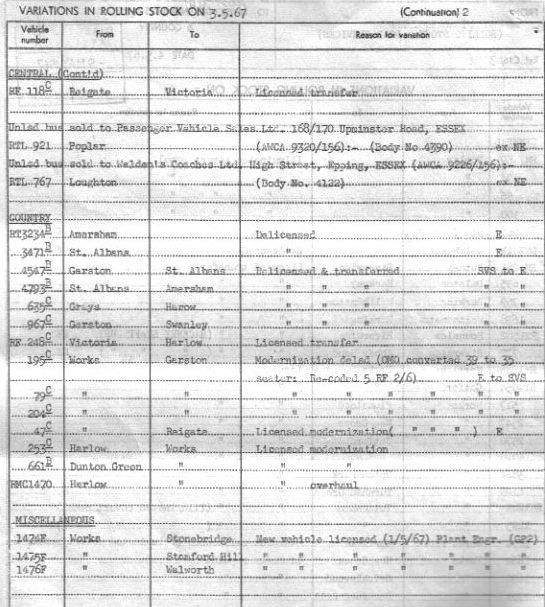 VARIATIONS IN ROLLING STOCK ON 3.5.67 (Continuation) 2
Vehicle number From To Reason for variation
CENTRAL (Cont'd)
RF.118C Reigate Victoria Licensed transfer
Unlsd bus sold to Passenger Vehicle Sales Ltd. 168/170 Upminster Road, ESSEX
RTL 921 Poplar (AWCA 9320/156):- (Body No 4390) ex NE
Unlsd bus sold to Weldon's Coaches Ltd. High Street, Epping, ESSEX (AWCA 9226/156):-
RTL 767 Loughton (Body No. 4122) ex NE
COUNTRY
RT3234B Amersham Delicensed E
3471B St. Albans " E
4547B Garston St. Albans Delicensed & transferred SVS to E
4793B St. Albans Amersham " " " " "
635C Grays Harlow " " " " "
967C Garston Swanley " " " " "
RF.248C Victoria Harlow Licensed transfer
195C Works Garston Modernization (OMO converted 39 to 35
seater: Re-coded 5 RF 2/6) E to SVS
79C " " " " " " " " "
204C " " " " " " " " "
47C " Reigate Licensed modernization( " " " ) E
253C Harlow Works Licensed modernization
661B Dunton Green " " "
RMC1470 Harlow " " overhaul
MISCELLANEOUS
1474F Works Stonebridge New vehicle licensed (1/5/67) Plant Engr. (GP2)
1475F " Stamford Hill " " " " " " "
1476F " Walworth " " " " " " "